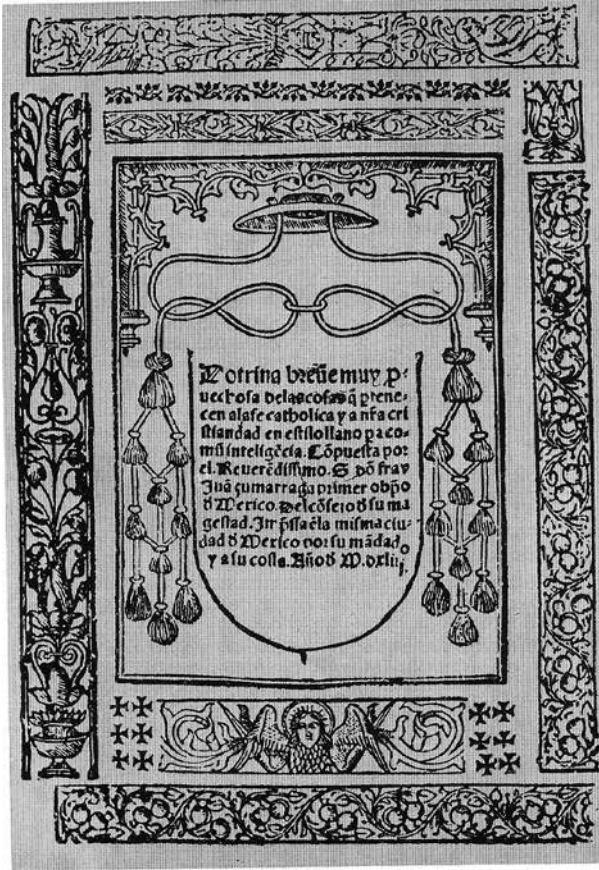 Dotrina breue muy ꝓ-
uechosa delas cosas q̃ ꝑtene-
cen ala fe catholica y a nr̃a cri
stiandad en estilo llano ꝑa co-
mũ inteligẽcia. Cõpuesta por
el. Reuerẽdissimo. S. dõ fray
Juã çumarraga primer obp̃o
d̃ Mexico. Del cõsejo d̃ su ma
gestad. Imp̃ssa ẽla misma ciu-
dad d̃ Mexico por su mãdado
y a su costa. Año d̃ M.dxliij